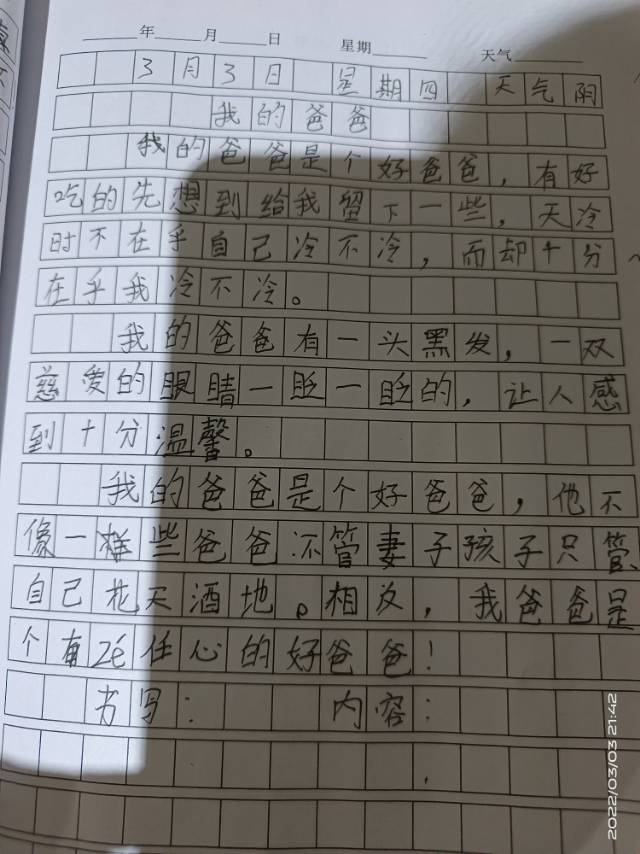 年 月 日 星期 天气
3月3日 星期四 天气阴
我的爸爸
我的爸爸是个好爸爸，有好
吃的先想到给我留下一些，天冷
时不在乎自己冷不冷，而却十分
在乎我冷不冷。
我的爸爸有一头黑发，一双
慈爱的眼睛一眨一眨的，让人感
到十分温馨。
我的爸爸是个好爸爸，他不
像一样些爸爸不管妻子孩子只管
自己花天酒地。相反，我爸爸是
个有zé任心的好爸爸！
书写： 内容：
2022/03/03 21:42